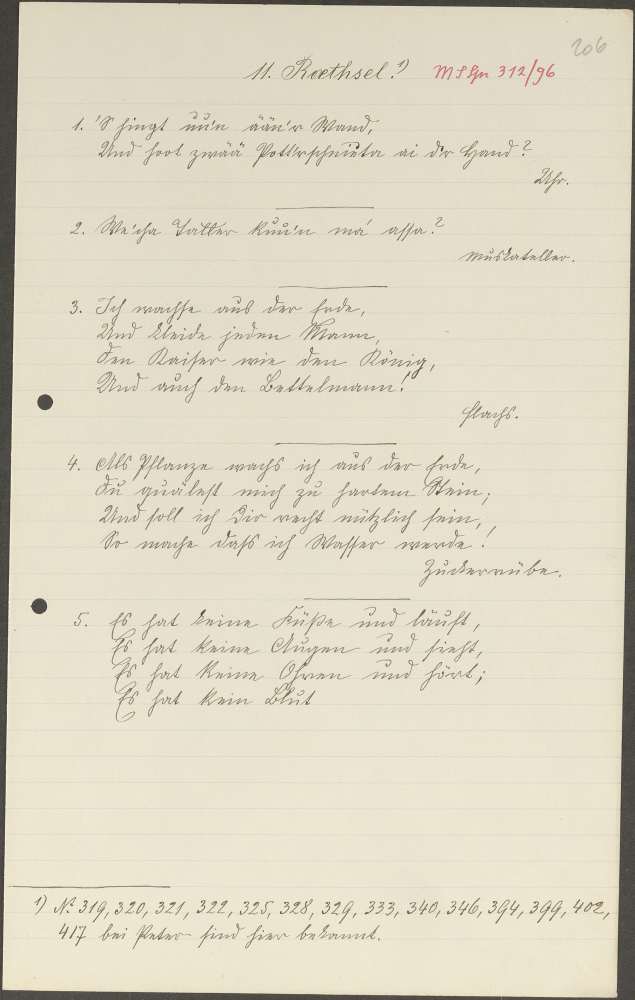 206
11. Raethsel.¹) MSgn 312/96
1. 'S hingt uu'n ään'r Wand,
Und hoot zwää ai d'r Hand?
Uhr.
2. We'cha Taller kuu'n ma' assa?
Muskateller.
3. Ich wachse aus der Erde,
Und kleide jeden Mann,
Den Kaiser wie den König,
Und auch den Bettelmann!
Flachs.
4. Als Pflanze wachs ich aus der Erde,
Du quälest mich zu hartem Stein;
Und soll ich Dir recht nützlich sein,
So mache daß ich Wasser werde!
Zuckerrübe.
5. Es hat keine Füße und läuft,
Es hat keine Augen und sieht,
Es hat keine Ohren und hört;
Es hat kein Blut
1) No. 319, 320, 321, 322, 325, 328, 329, 333, 340, 346, 394, 399, 402,
417 bei Peter sind hier bekannt.